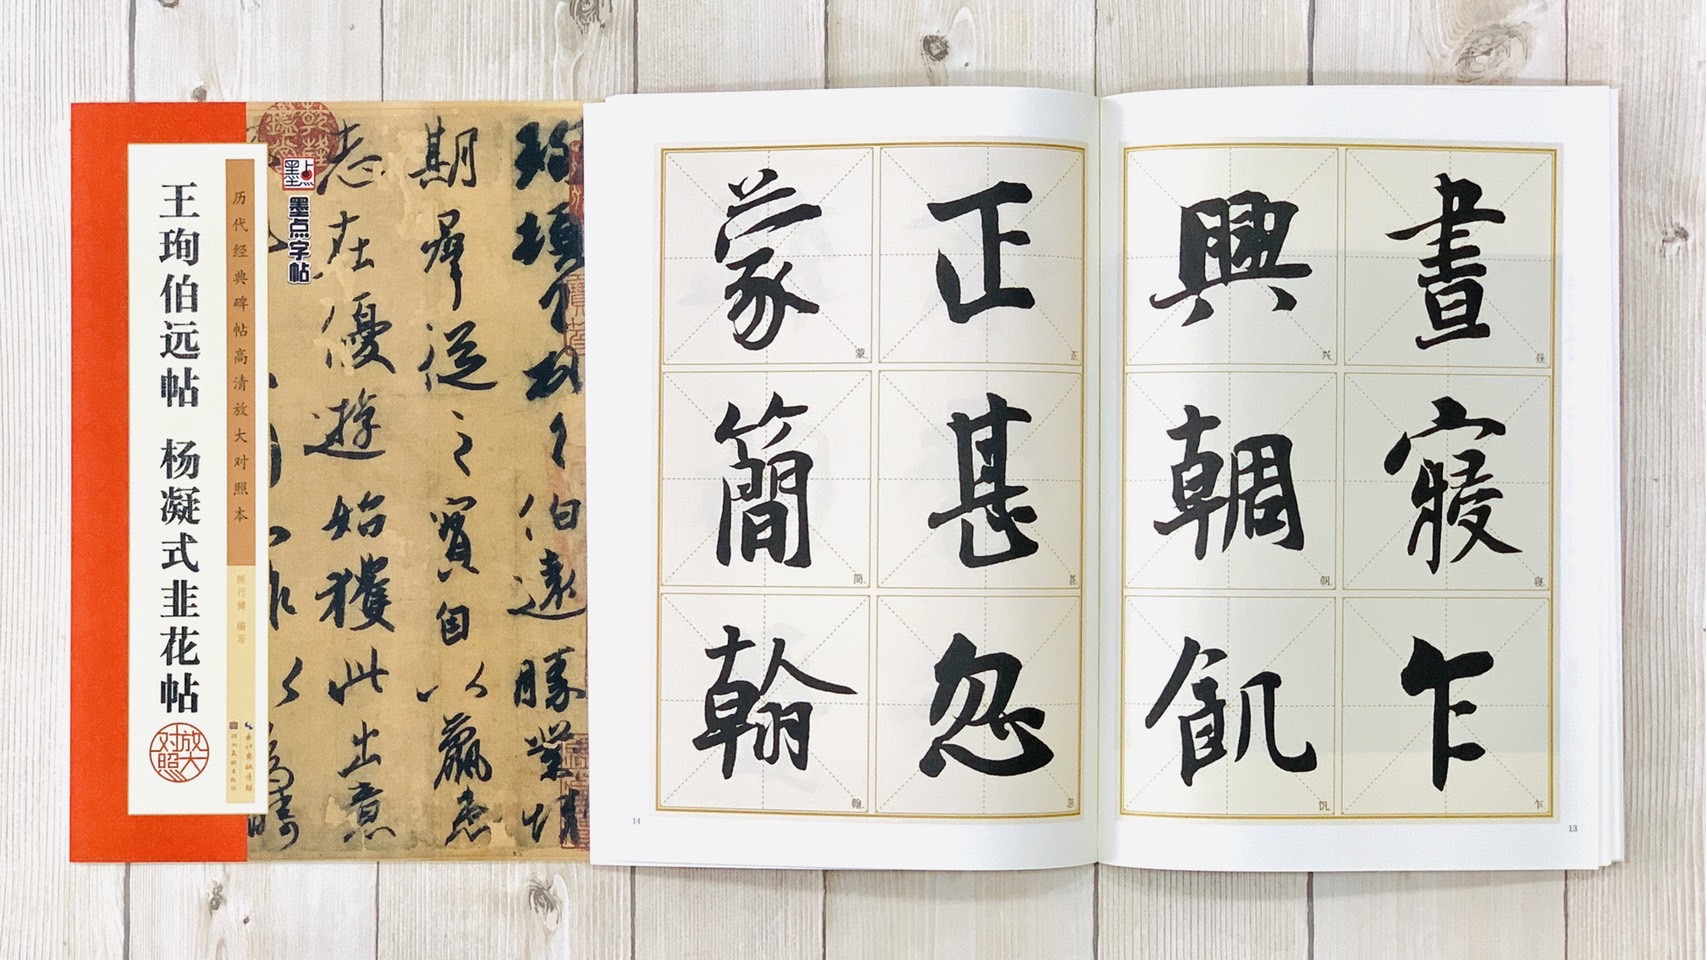 王珣伯远帖 杨凝式韭花帖
放大对照
历代经典碑帖高清放大对照本
编写
墨点
墨点字帖
珣頓首頓首伯遠勝業情
期群從之寶自以羸患
志在優遊始獲此出意
晝寢乍
興輖飢
正甚忽
蒙簡翰
昼
寝
乍
兴
輖
饥
正
甚
忽
蒙
简
翰
14
13